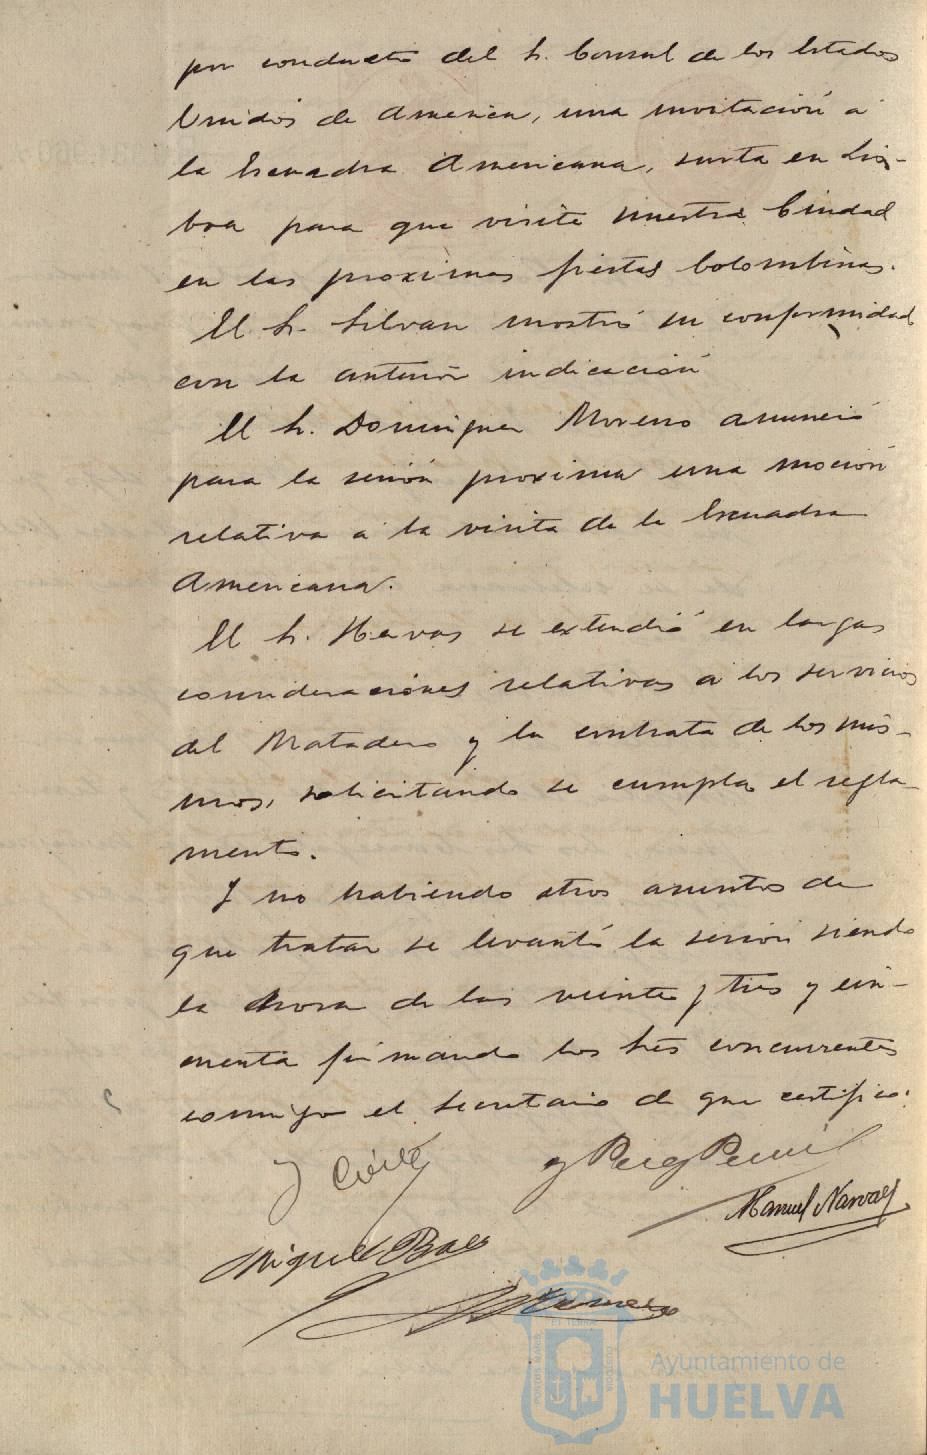 por conducto del Sr. Consul de los Estados
Unidos de America, una invitación á
la Escuadra Americana, surta en Lis-
boa para que visite nuestra Ciudad
en las proximas fiestas Colombinas.
El Sr. Silvan mostró su conformidad
con la anterior indicación
El Sr. Dominguez Moreno anunció
para la sesión proxima una moción
relativa á la visita de la Escuadra
Americana.
El Sr. Hervas se extendió en largas
consideraciones relativas á los servicios
del Matadero y la contrata de los mis-
mos, solicitando se cumpla el regla-
mento.
Y no habiendo otros asuntos de
que tratar se levantó la sesión siendo
la hora de las veinte y tres y cin-
cuenta firmando los Sres concurrentes
conmigo el secretario de que certifico.
Manuel Narvaez
Miguel Baez
Ayuntamiento de
HUELVA